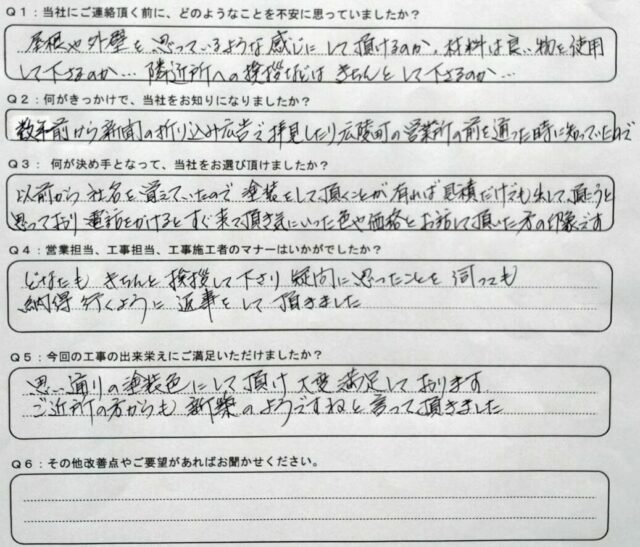 Q1：当社にご連絡頂く前に、どのようなことを不安に思っていましたか？
屋根や外壁を思っているような感じにして頂けるのか、材料は良い物を使用
して下さるのか… 隣近所への挨拶などは きちんとして下さるのか…
Q2：何がきっかけで、当社をお知りになりましたか？
数年前から新聞の折り込み広告で拝見したり広陵町の営業所の前を通った時に知っていたので
Q3： 何が決め手となって、当社をお選び頂けましたか？
以前から社名を覚えていたので塗装をして頂くことが有れば見積だけでも出して頂こうと
思っており 電話をかけるとすぐ来て頂き気にいった色や価格とお話して頂いた方の印象です
Q4：営業担当、工事担当、工事施工者のマナーはいかがでしたか？
どなたも きちんと挨拶して下さり 疑問に思ったことを 伺っても
納得行くように 返事をして頂きました
Q5：今回の工事の出来栄えにご満足いただけましたか？
思い通りの塗装色にして頂け 大変満足しております
ご近所の方からも 新築のようですねと言って頂きました
Q6：その他改善点やご要望があればお聞かせください。